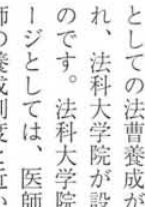 としての法曹養成が
れ、法科大学院が設
のです。法科大学院
ージとしては、医師
師の養成制度と近い